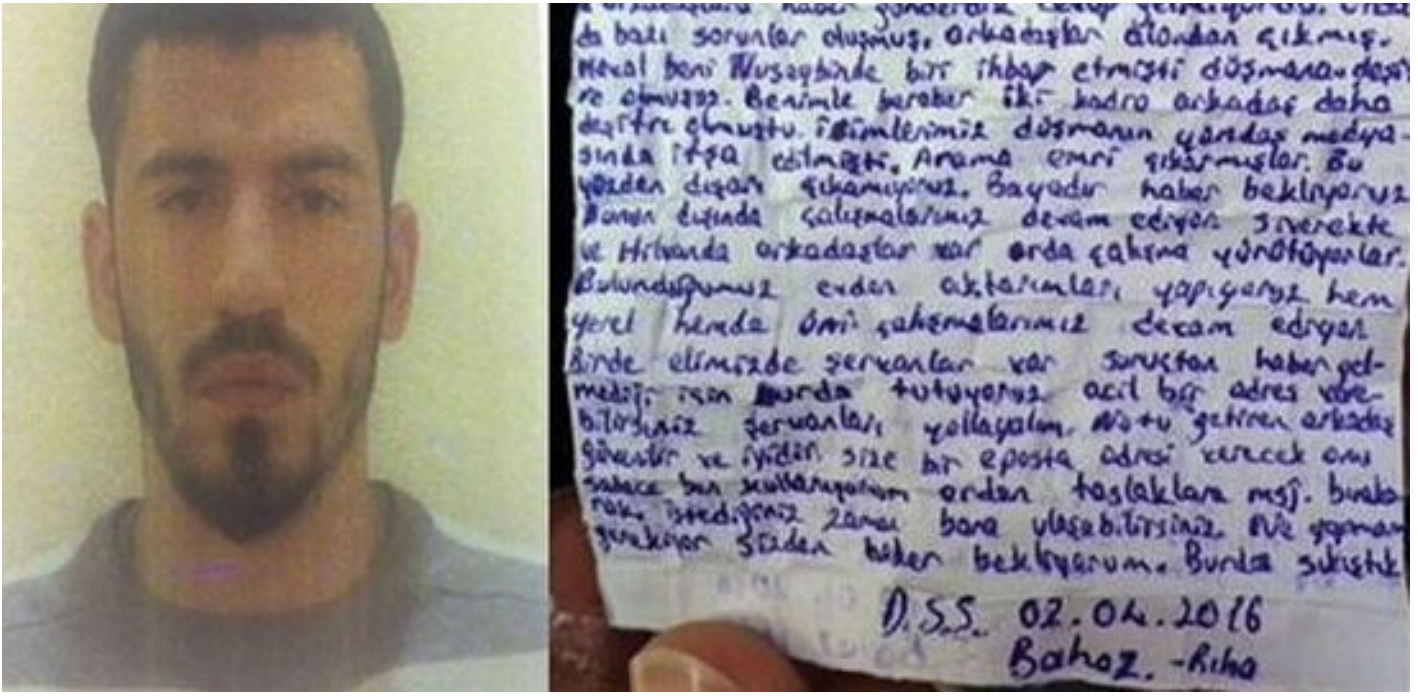 haber gönderdik cevap gelmiyordu.
da bazı sorunlar oluşmuş, arkadaşlar alandan çıkmış.
Heval beni Nusaybinde biri ihbar etmişti düşmana. deşif
re olmuşuz. Benimle beraber iki kadro arkadaş daha
deşifre olmuştu. isimlerimiz düşmanın yandaş medya-
sında ifşa edilmişti. Arama emri çıkarmışlar. Bu
yüzden dışarı çıkamıyoruz. Bayadır haber bekliyoruz
Bunun dışında çalışmalarımız devam ediyor siverekte
ve Hilvanda arkadaşlar var orda çalışma yürütüyorlar.
Bulunduğumuz evden aktarımları yapıyoruz hem
yerel hemde öni çalışmalarımız devam ediyor
Birde elimizde şervanlar var suruçtan haber gel-
mediği için burda tutuyoruz acil bir adres vere-
bilirseniz şervanları yollayalım. Notu getiren arkadaş
güvenilir ve iyidir size bir eposta adresi verecek onu
sadece ben kullanıyorum ordan taslaklara msj. bıraka
rak. istediğiniz zaman bana ulaşabilirsiniz. Ne yapmam
gerekiyor sizden haber bekliyorum. Burda sıkıştık
D.S.S. 02.04.2016
Bahoz. -Riha